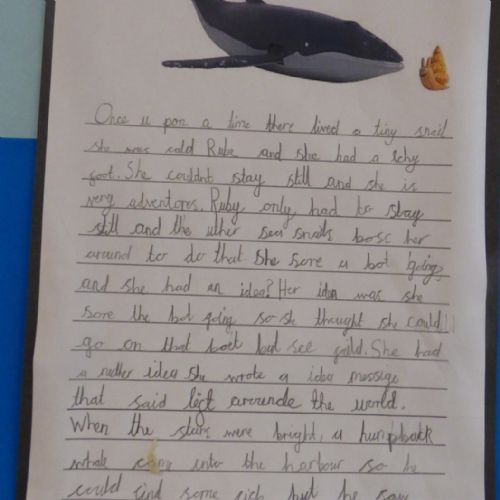 Once u pon a time there lived a tiny snail
she was cald Rube and she had a ichy
foot. She couldnt stay still and she is
very adventores. Ruby only had to stay
still and the uther sea snails bosc her
around to do that. She sore a bot going
and she had an idea? Her idea was she
sore the bot going, so she thought she could
go on that boat but see faild. She had
a nuther idea she wrote a messige
that said left arounde the world.
When the stars were bright, a humpback
whale came into the harbour so he
could find some but he saw